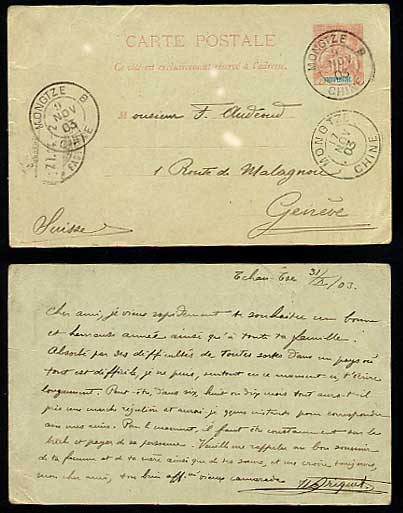 CARTE POSTALE
Ce côté est exclusivement réservé à l'adresse.
MONGTZE B
9
NOV
03
CHINE
MONGTZE B
9
NOV
03
CHINE
MONGTZE
17
NOV
03
CHINE
Monsieur F. Audéoud
1 Route de Malagnou
Genève
Suisse
31/X/03.
Cher ami, je viens rapidement te souhaiter une bonne
et heureuse année ainsi qu'à toute ta famille.
Absorbé par des difficultés de toutes sortes dans un pays où
tout est difficile, je ne puis, surtout en ce moment-ci t'écrire
longuement. Peut-être, dans six, huit ou dix mois tout aura-t-il
pris une marche régulière et aurai-je quelques instants pour correspondre
avec mes amis. Pour le moment, il faut être constamment sur la
brèche et payer de sa personne. Veuille me rappeler au bon souvenir
de ta femme et de ta mère ainsi que de tes sœurs, et me croire toujours,
mon cher ami, ton bien aff. vieux camarade